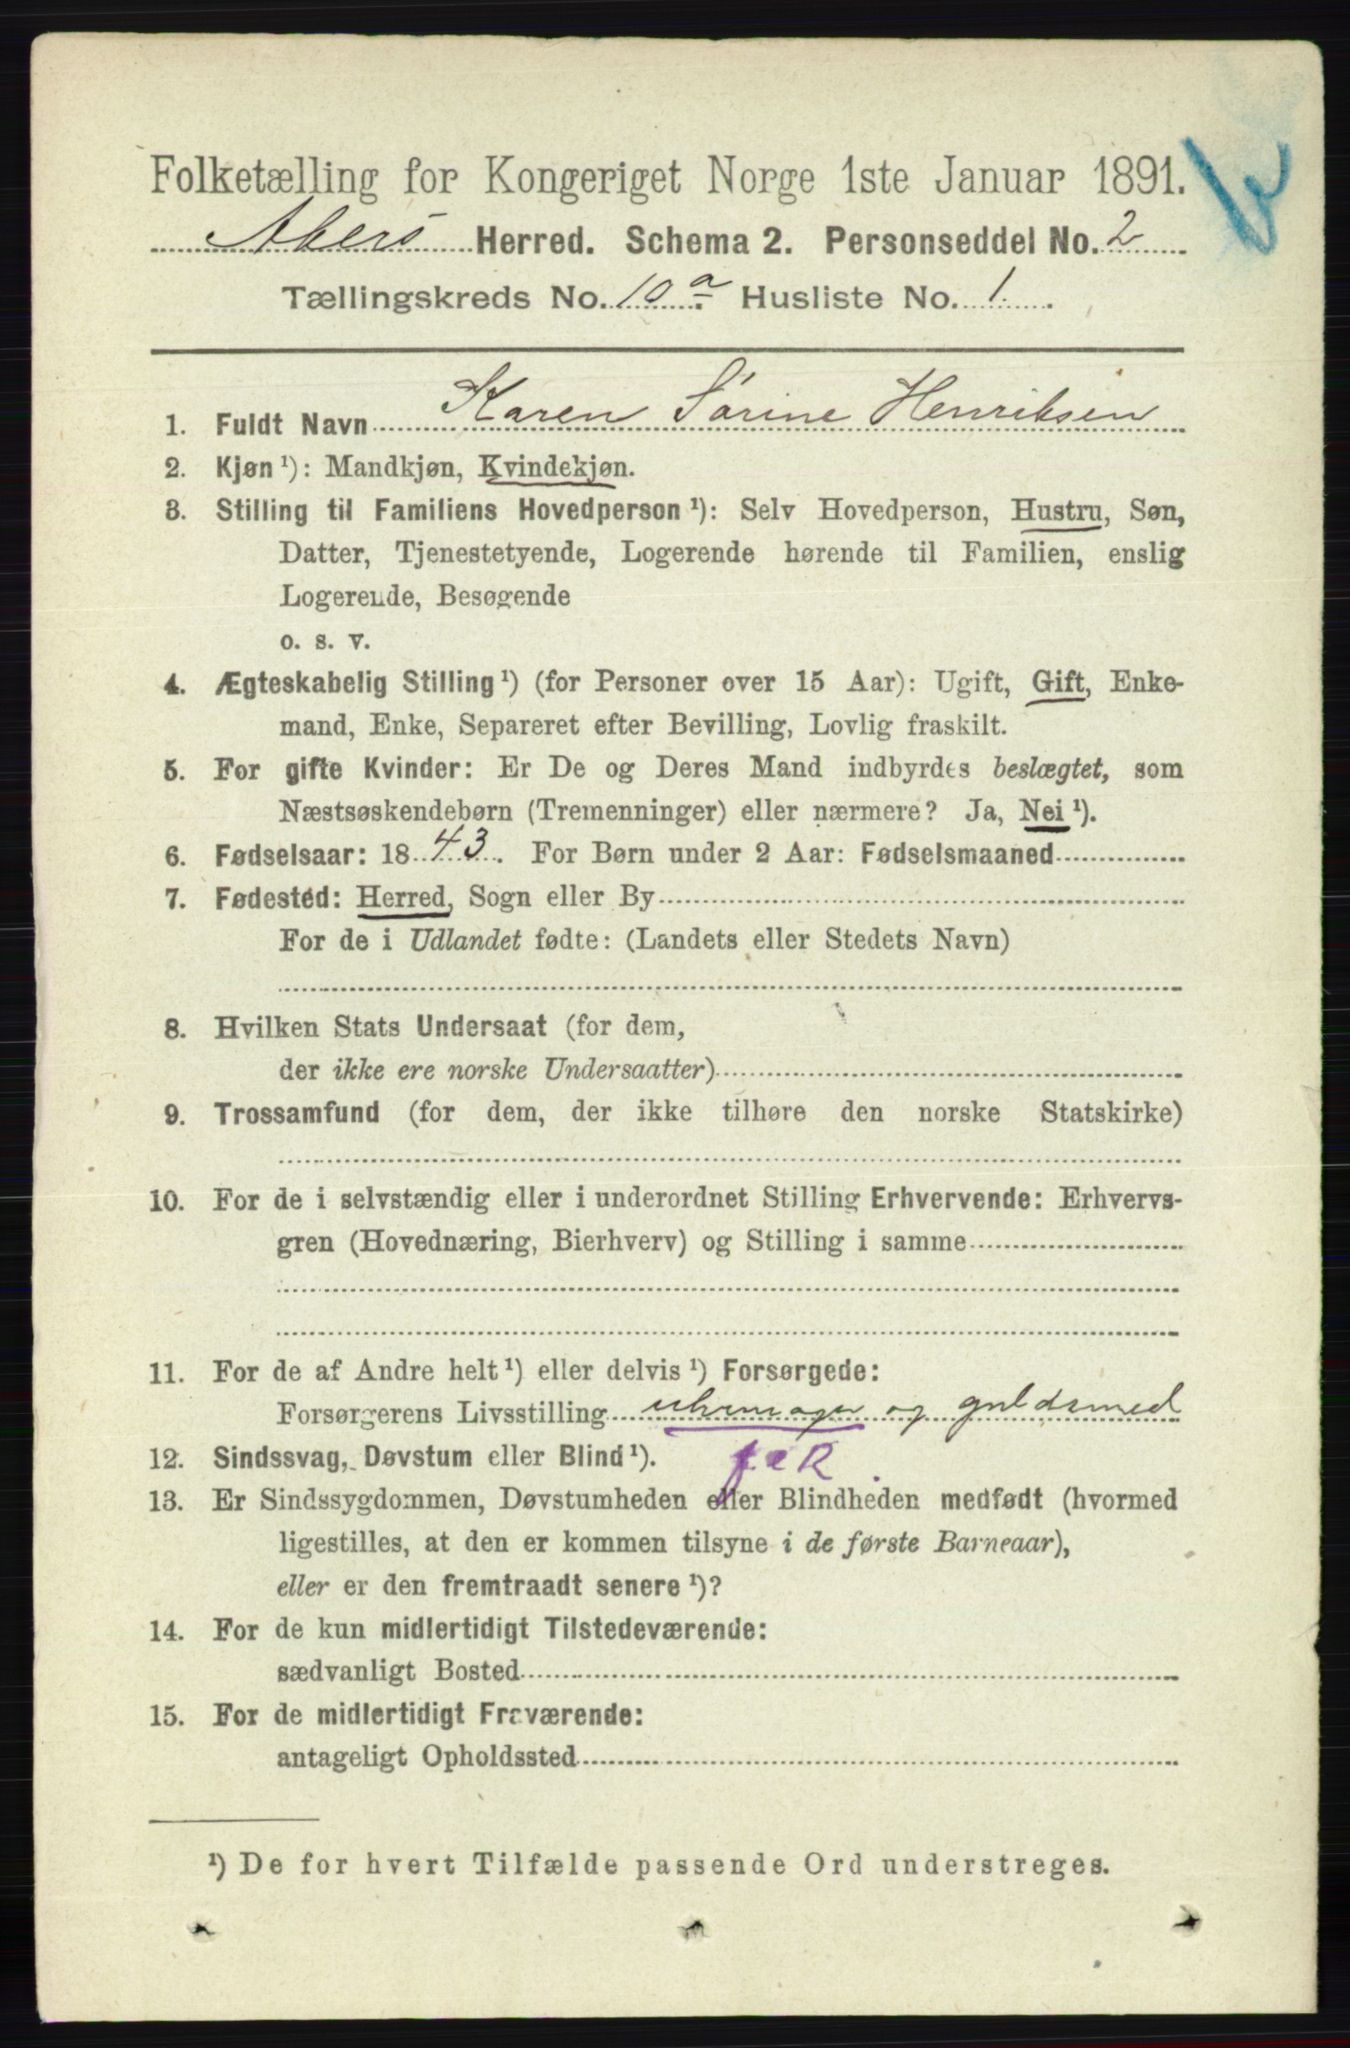 Folketælling for Kongeriget Norge 1ste Januar 1891.
Akers Herred. Schema 2. Personseddel No. 2
Tællingskreds No. 10 a Husliste No. 1.
1. Fuldt Navn Karen Sørine Henriksen
2. Kjøn ¹): Mandkjøn, Kvindekjøn.
3. Stilling til Familiens Hovedperson ¹): Selv Hovedperson, Hustru, Søn,
Datter, Tjenestetyende, Logerende hørende til Familien, enslig
Logerende, Besøgende
o. s. v.
4. Ægteskabelig Stilling ¹) (for Personer over 15 Aar): Ugift, Gift, Enke-
mand, Enke, Separeret efter Bevilling, Lovlig fraskilt.
5. For gifte Kvinder: Er De og Deres Mand indbyrdes beslægtet, som
Næstsøskendebørn (Tremenninger) eller nærmere? Ja, Nei ¹).
6. Fødselsaar: 1843. For Børn under 2 Aar: Fødselsmaaned
7. Fødested: Herred, Sogn eller By
For de i Udlandet fødte: (Landets eller Stedets Navn)
8. Hvilken Stats Undersaat (for dem,
der ikke ere norske Undersaatter)
9. Trossamfund (for dem, der ikke tilhøre den norske Statskirke)
10. For de i selvstændig eller i underordnet Stilling Erhvervende: Erhvervs-
gren (Hovednæring, Bierhverv) og Stilling i samme
11. For de af Andre helt ¹) eller delvis ¹) Forsørgede:
Forsørgerens Livsstilling uhrmager og guldsmed
12. Sindssvag, Døvstum eller Blind ¹).
13. Er Sindssygdommen, Døvstumheden eller Blindheden medfødt (hvormed
ligestilles, at den er kommen tilsyne i de første Barneaar),
eller er den fremtraadt senere ¹)?
14. For de kun midlertidigt Tilstedeværende:
sædvanligt Bosted
15. For de midlertidigt Fraværende:
antageligt Opholdssted
¹) De for hvert Tilfælde passende Ord understreges.